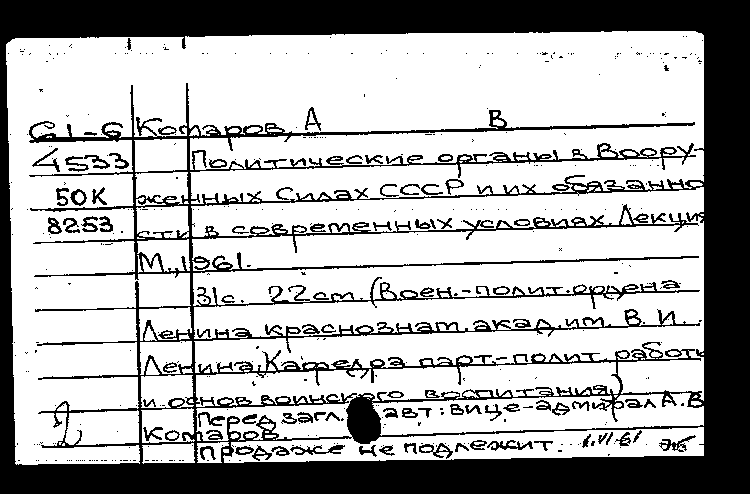 61-6 Комаров, А В
4533 Политические органы в Воору-
50К женных Силах СССР и их обязанно
8253. сти в современных условиях. Лекция
М., 1961.
31с. 22см. (Воен.-полит. ордена
Ленина краснознам. акад. им. В. И.
Ленина. Кафедра парт.-полит. работы
и основ воинского воспитания.)
Перед загл. авт: вице-адмирал А. В
2 Комаров.
Продаже не подлежит. 1.VI-61